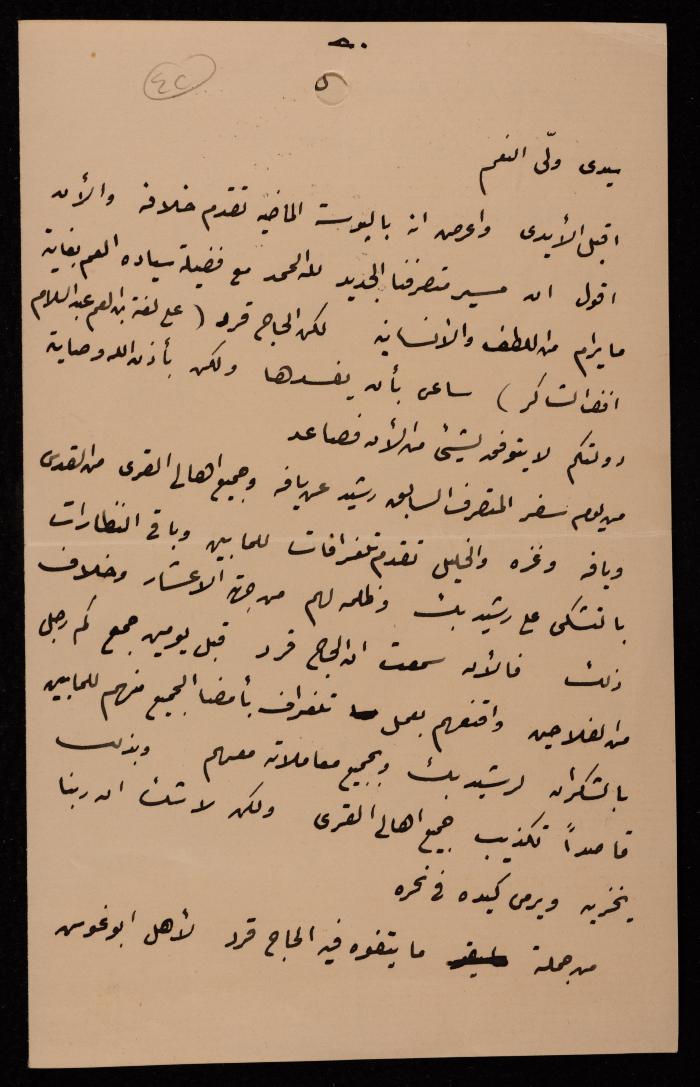 ٥٠
٤٢
سيدى ولّى النعم
اقبل الأيدى واعرض انه باليوسته الماضيه تقدم خلافه والأن
اقول ان مسير متصرفنا الجديد لله الحمد مع فضيلة سياده العم بغاية
ما يرام من اللطف والانسانيه لكن الحاج قرد ( على لغة ابن العم عبد السلام
افندى الشاكر ) ساعى بأن يفسدها ولكن بأذن الله وصاية
دولتكم لا يتوفق لشيئ من الأن فصاعد
من يوم سفر المتصرف السابق رشيد عن يافه وجميع اهالى القرى من القدس
ويافه وغزه والخليل تقدم تلغرافات للمابين وباقى النظارات
بالتشكى على رشيد بك وظلمه لهم من جهة الاعشار وخلاف
ذلك فالأن سمعت ان الحاج قرد قبل يومين جمع كم رجل
من الفلاحين واقنعهم بعمل تلغراف بأمضا الجميع منهم للمابين
بالشكران لرشيد بك وبجميع معاملاته معهم وبذلك
قاصداً تكذيب جميع اهالى القرى ولكن لا شك ان ربنا
يخزيه ويرمى كيده فى نحره
من جملة ما يتفوه فيه الحاج قرد لأهل ابوغوش